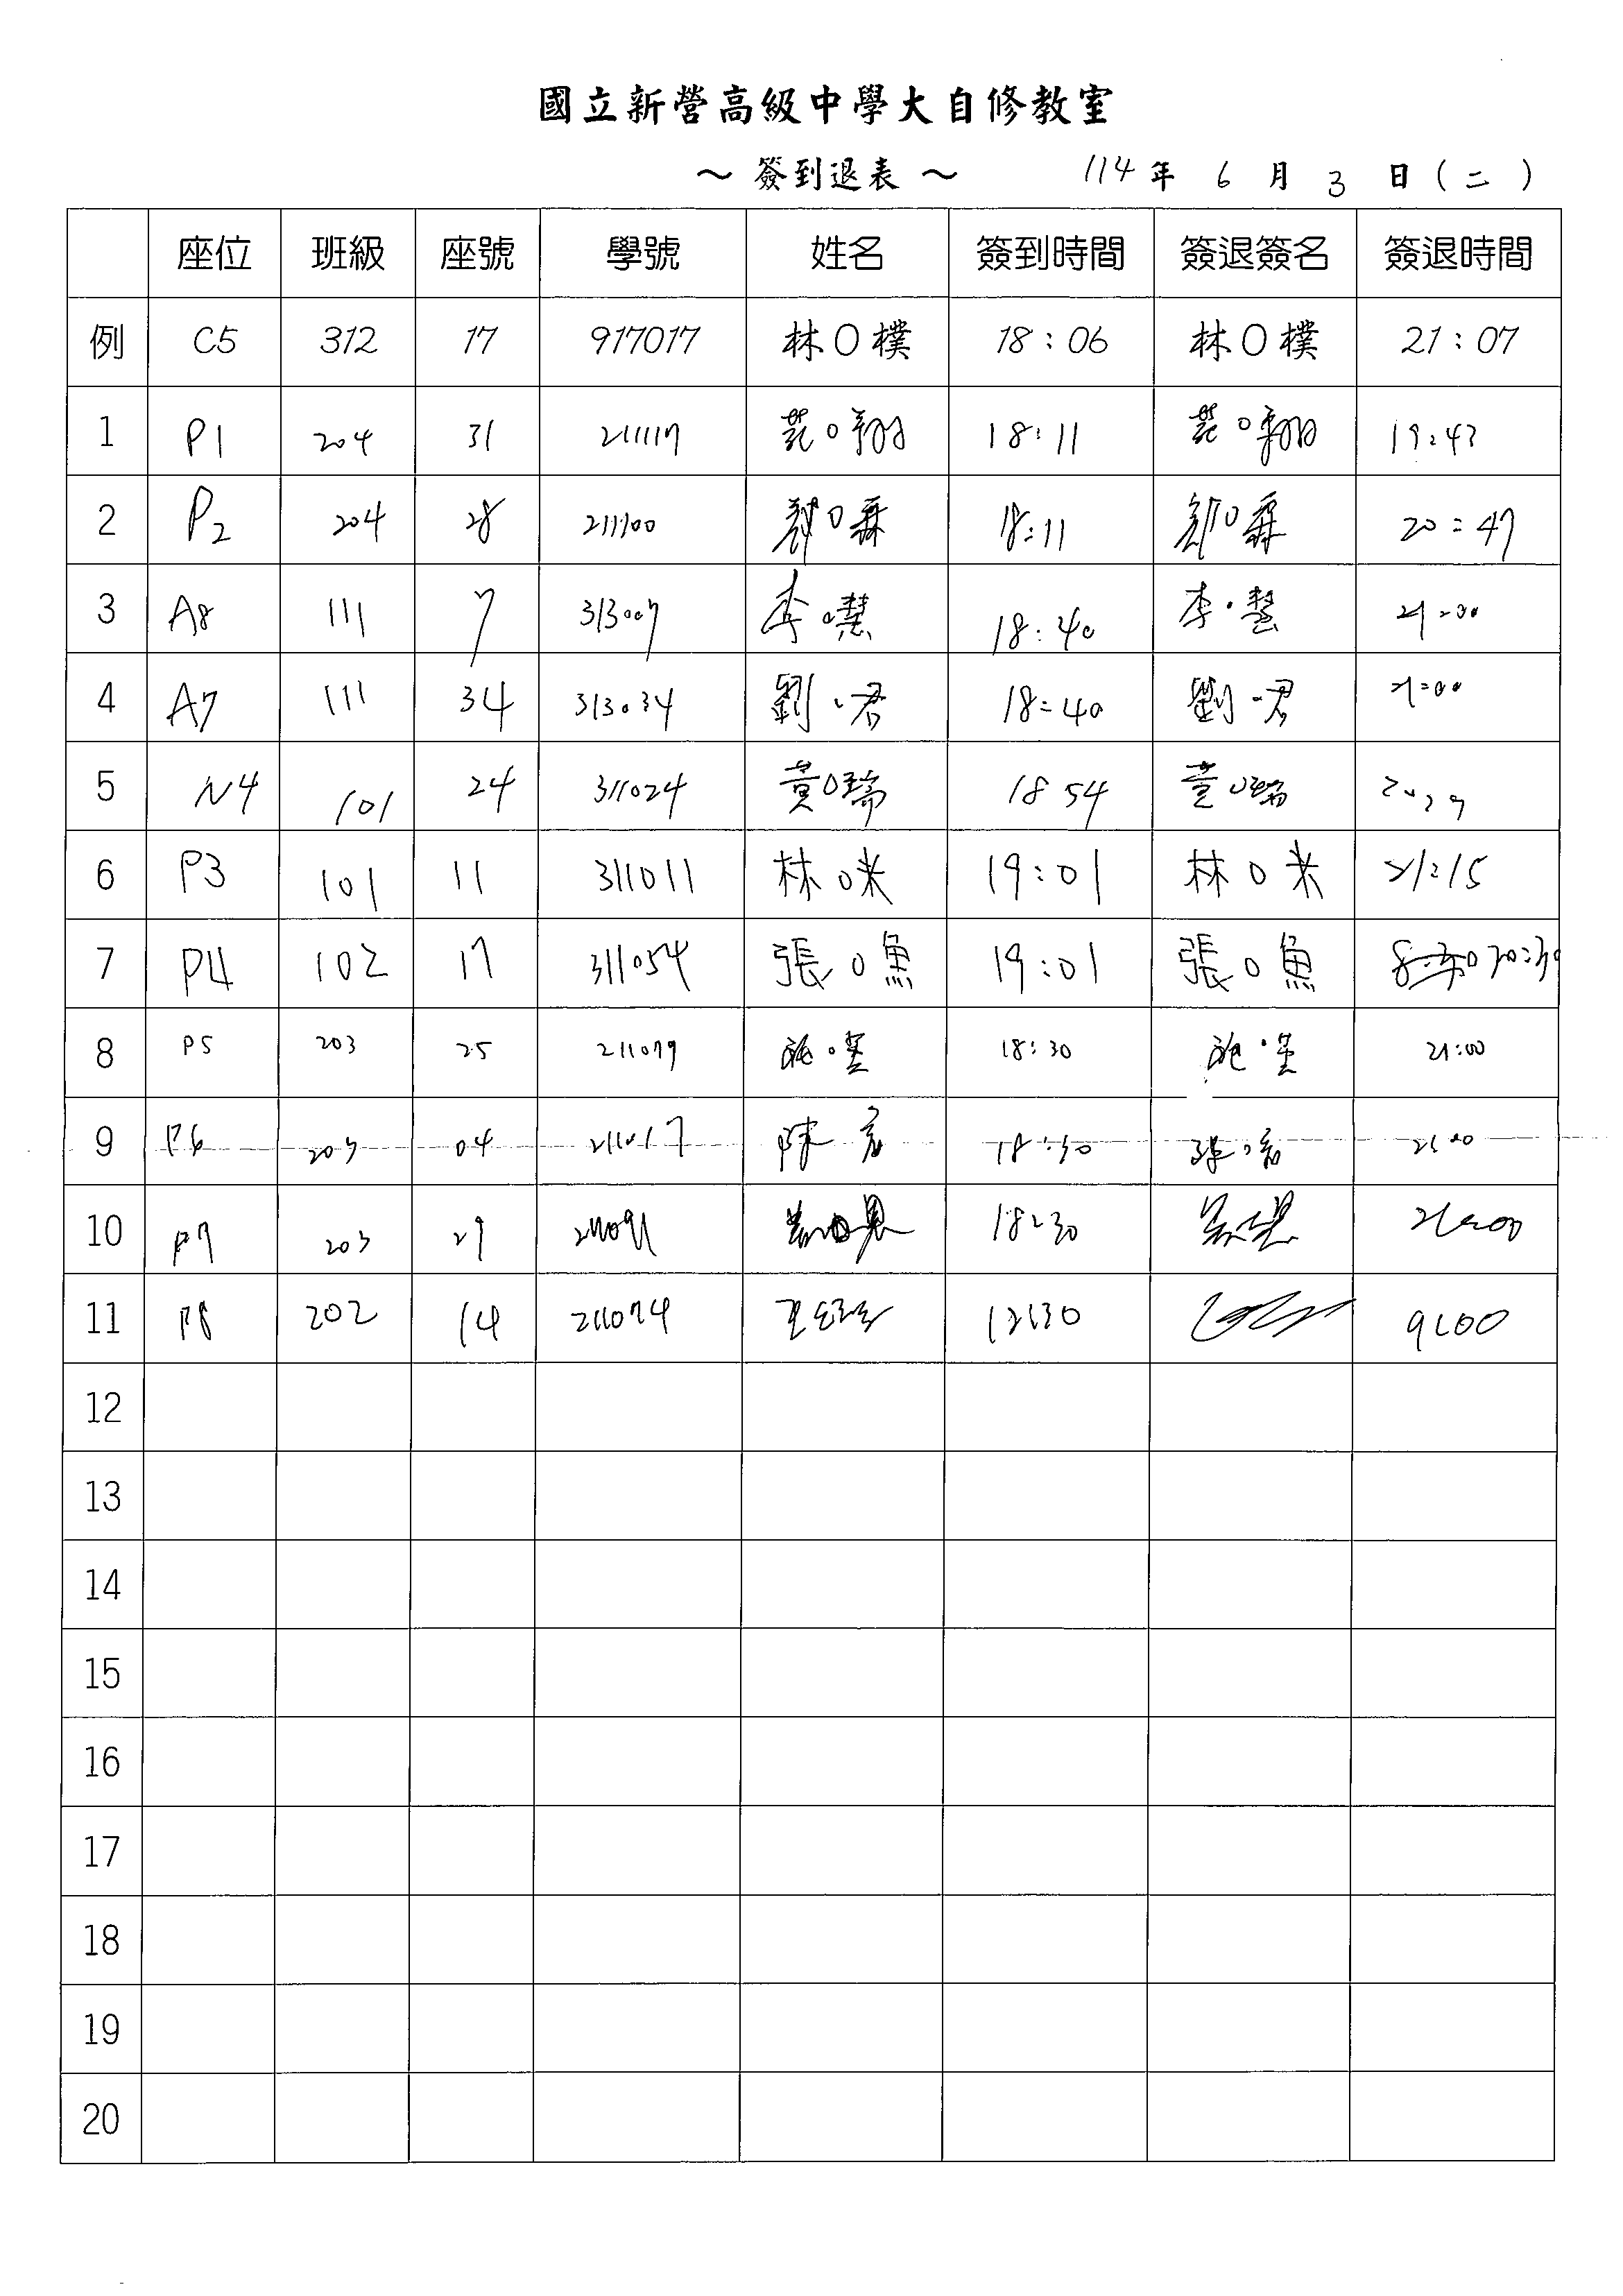 國立新營高級中學大自修教室
～ 簽到退表 ～ 114 年 6 月 3 日 ( 二 )
座位 班級 座號 學號 姓名 簽到時間 簽退簽名 簽退時間
例 C5 312 17 917017 林O樸 18:06 林O樸 21:07
1 P1 204 31 211117 O翔 18:11 O翔 19:43
2 P2 204 28 211100 鄭O霖 18:11 鄭O霖 20:47
3 A8 111 7 313007 李O慧 18:40 李·慧 21:00
4 A7 111 34 313034 劉·君 18:40 劉·君 21:00
5 N4 101 24 311024 黃O瑞 18 54 黃O瑞
6 P3 101 11 311011 林O米 19:01 林O米 21:15
7 P4 102 17 311054 張O魚 19:01 張O魚 20:30
8 P5 203 25 211079 施· 18:30 施· 21:00
9 P6 203 04 陳 宏 18:30 21:00
10 P7 203 29 18:30 21:00
11 P8 202 14 211074
12
13
14
15
16
17
18
19
20